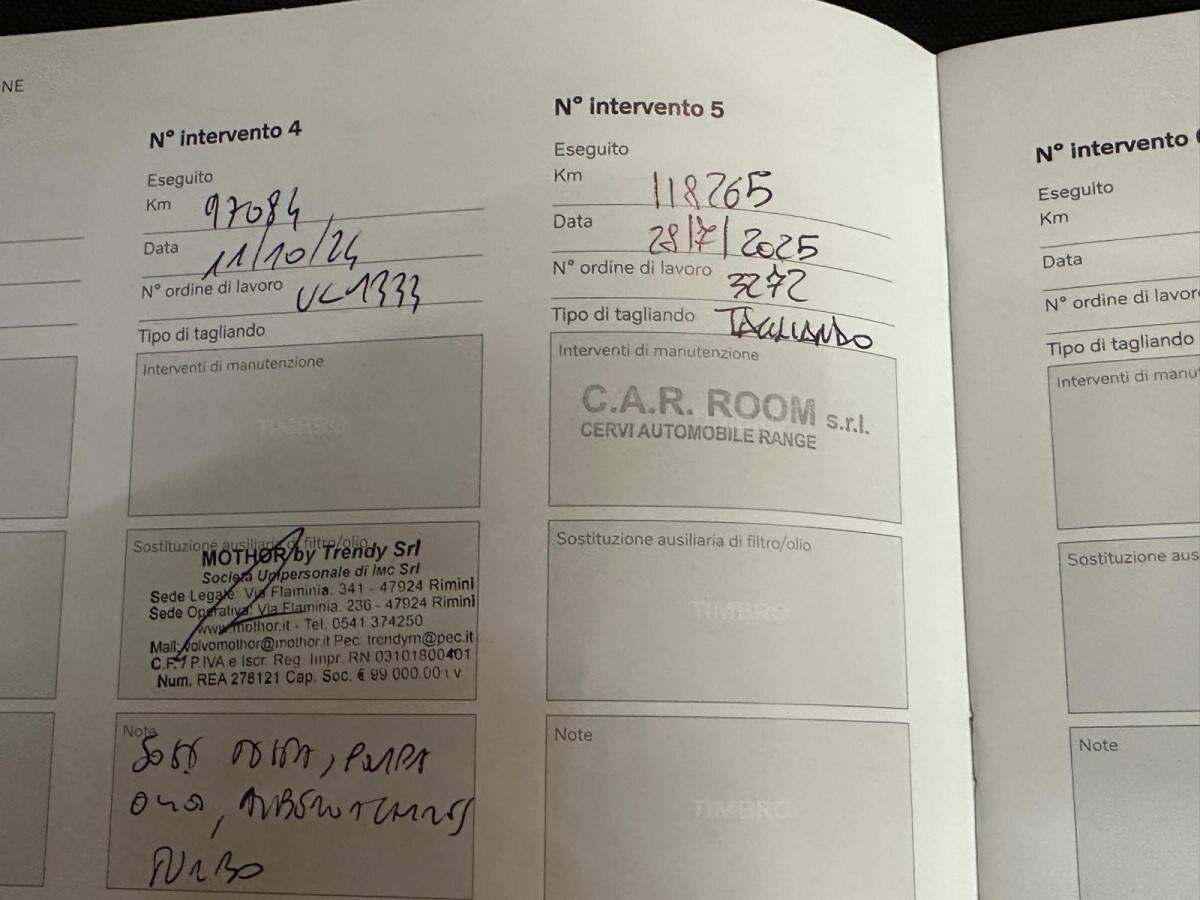 NE
N° intervento 4
Eseguito
Km 97084
Data 11/10/24
N° ordine di lavoro UC1333
Tipo di tagliando
Interventi di manutenzione
TIMBRO
Sostituzione ausiliaria di filtro/olio
MOTHOR by Trendy Srl
Società Unipersonale di IMC Srl
Sede Legale: Via Flaminia. 341 - 47924 Rimini
Sede Operativa: Via Flaminia. 236 - 47924 Rimini
www.mothor.it - Tel. 0541 374250
Mail: volvomothor@mothor.it Pec: trendym@pec.it
C.F. / P.IVA e Iscr. Reg. Impr. RN 03101800401
Num. REA 278121 Cap. Soc. € 99.000.00 I V
Note
POMPA
TURBO
N° intervento 5
Eseguito
Km 118265
Data 28/7/2025
N° ordine di lavoro 3272
Tipo di tagliando TAGLIANDO
Interventi di manutenzione
C.A.R. ROOM s.r.l.
CERVI AUTOMOBILE RANGE
Sostituzione ausiliaria di filtro/olio
TIMBRO
Note
TIMBRO
N° intervento
Eseguito
Km
Data
N° ordine di lavoro
Tipo di tagliando
Interventi di manut
Sostituzione aus
Note